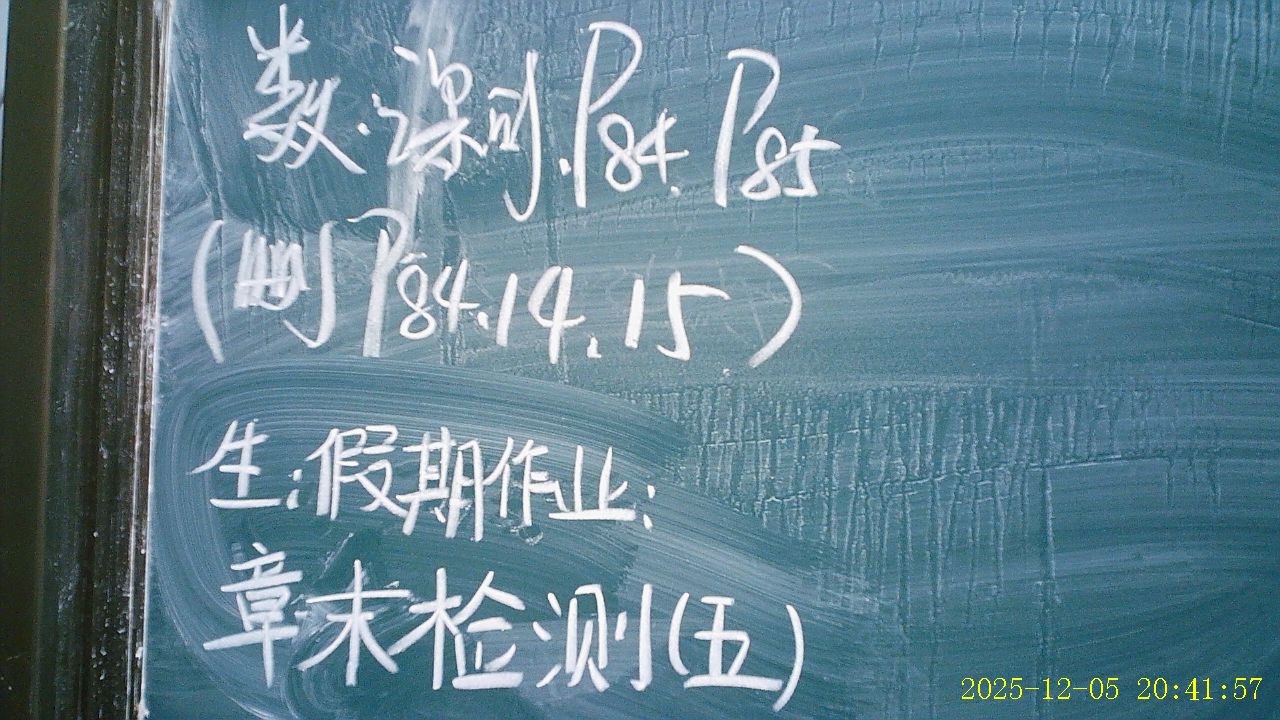 数:课时.P84.P85
(删P84.14.15)
生:假期作业:
章末检测(五)
2025-12-05 20:41:57